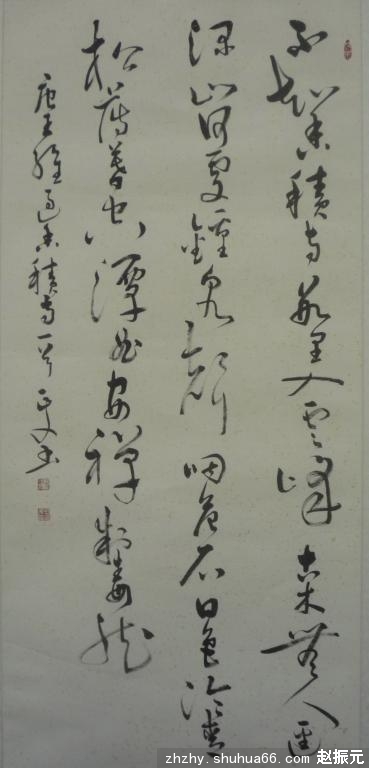 不知香積寺數里入雲峰古木無人徑
深山何處鐘泉聲咽危石日色冷青
松薄暮空潭曲安禪制毒龍
唐王維過香積寺一首
zhzhy.shuhua66.com 赵振元